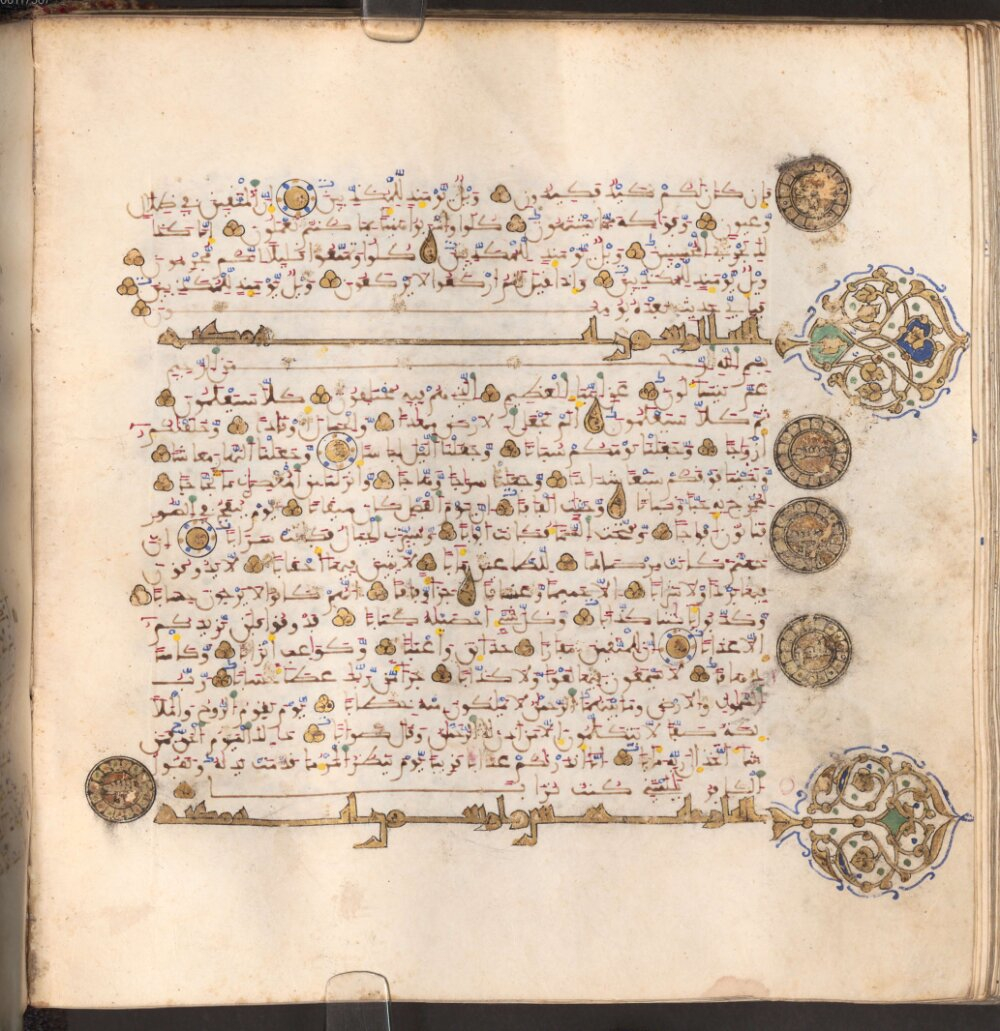 فإن كان لكم كيد فكيدون ويل يومئذ للمكذبين إن المتقين في ظلال
وعيون وفواكه مما يشتهون كلوا واشربوا هنيئا بما كنتم تعملون إنا كذ
لك نجزي المحسنين ويل يومئذ للمكذبين كلوا وتمتعوا قليلا إنكم مجرمون
ويل يومئذ للمكذبين وإذا قيل لهم اركعوا لا يركعون ويل يومئذ للمكذبين
فبأي حديث بعده يومنون
مكية
بسم الله الرحمن الرحيم
عم يتساءلون عن النبإ العظيم الذي هم فيه مختلفون كلا سيعلمون
ثم كلا سيعلمون ألم نجعل الارض مهادا والجبال أوتادا وخلقنكم
أزواجا وجعلنا نومكم سباتا وجعلنا اليل لباسا وجعلنا النهار معاشا
وبنينا فوقكم سبعا شدادا وجعلنا سراجا وهاجا وأنزلنا من المعصرت ماء ثجاجا
لنخرج به حبا ونباتا وجنت ألفافا إن يوم الفصل كان ميقتا يوم ينفخ في الصور
فتأتون أفواجا وفتحت السماء فكانت أبوابا وسيرت الجبال فكانت سرابا إن
جهنم كانت مرصادا للطاغين مئابا لبثين فيها أحقابا لا يذوقون
فيها بردا ولا شرابا إلا حميما وغساقا جزاء وفاقا إنهم كانوا لا يرجون حسابا
وكذبوا بئايتنا كذابا وكل شيء أحصينه كتابا فذوقوا فلن نزيدكم
إلا عذابا إن للمتقين مفازا حدائق وأعنابا وكواعب أترابا وكأسا
دهاقا لا يسمعون فيها لغوا ولا كذابا جزاء من ربك عطاء حسابا رب
السموت والارض وما بينهما الرحمن لا يملكون منه خطابا يوم يقوم الروح والملا
ئكة صفا لا يتكلمون إلا من أذن له الرحمن وقال صوابا ذلك اليوم الحق فمن
شاء اتخذ إلى ربه مئابا إنا أنذرنكم عذابا قريبا يوم ينظر المرء ما قدمت يداه ويقول
الكافر يليتني كنت ترابا
مكية